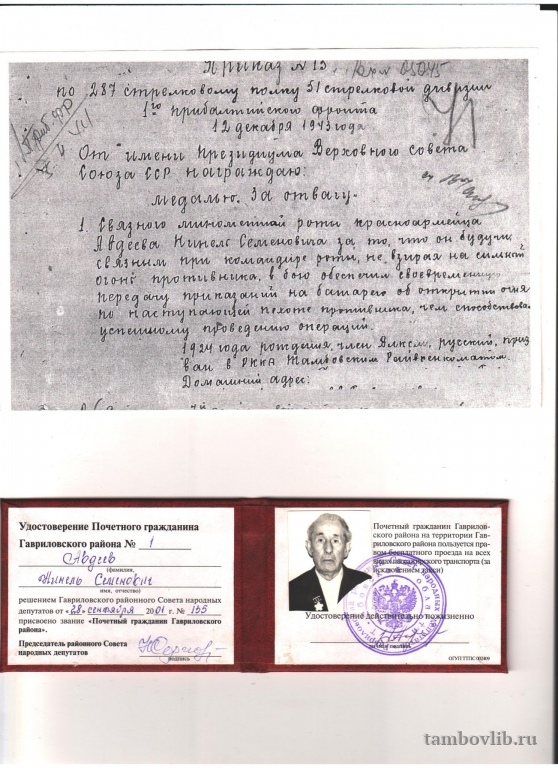 Приказ № 13
по 287 стрелковому полку 51 стрелковой дивизии
1го прибалтийского фронта
12 декабря 1943 года
От имени Президиума Верховного совета
Союза ССР награждаю:
Медалью "За отвагу"
1. Связного минометной роты красноармейца
Авдеева Нинель Семеновича за то, что он будучи
связным при командире роты, не взирая на сильный
огонь противника, в бою обеспечил своевременную
передачу приказаний на батарею об открытии огня
по наступающей пехоте противника, чем способствовал
успешному проведению операций.
1924 года рождения, член ВЛКСМ, русский, приз
ван в РККА Тамбовским Райвоенкоматом.
Домашний адрес:
Удостоверение Почетного гражданина
Гавриловского района № 1
Авдеев
(фамилия,
Нинель Семенович
имя, отчество)
решением Гавриловского районного Совета народных
депутатов от «28» сентября 2001 г. № 155
присвоено звание «Почетный гражданин Гавриловского
района».
Председатель районного Совета
народных депутатов
подпись
Почетный гражданин Гаврилов-
ского района на территории Гав-
риловского района пользуется пра-
вом бесплатного проезда на всех
видах пассажирского транспорта (за
исключением такси)
Удостоверение действительно пожизненно
tambovlib.ru